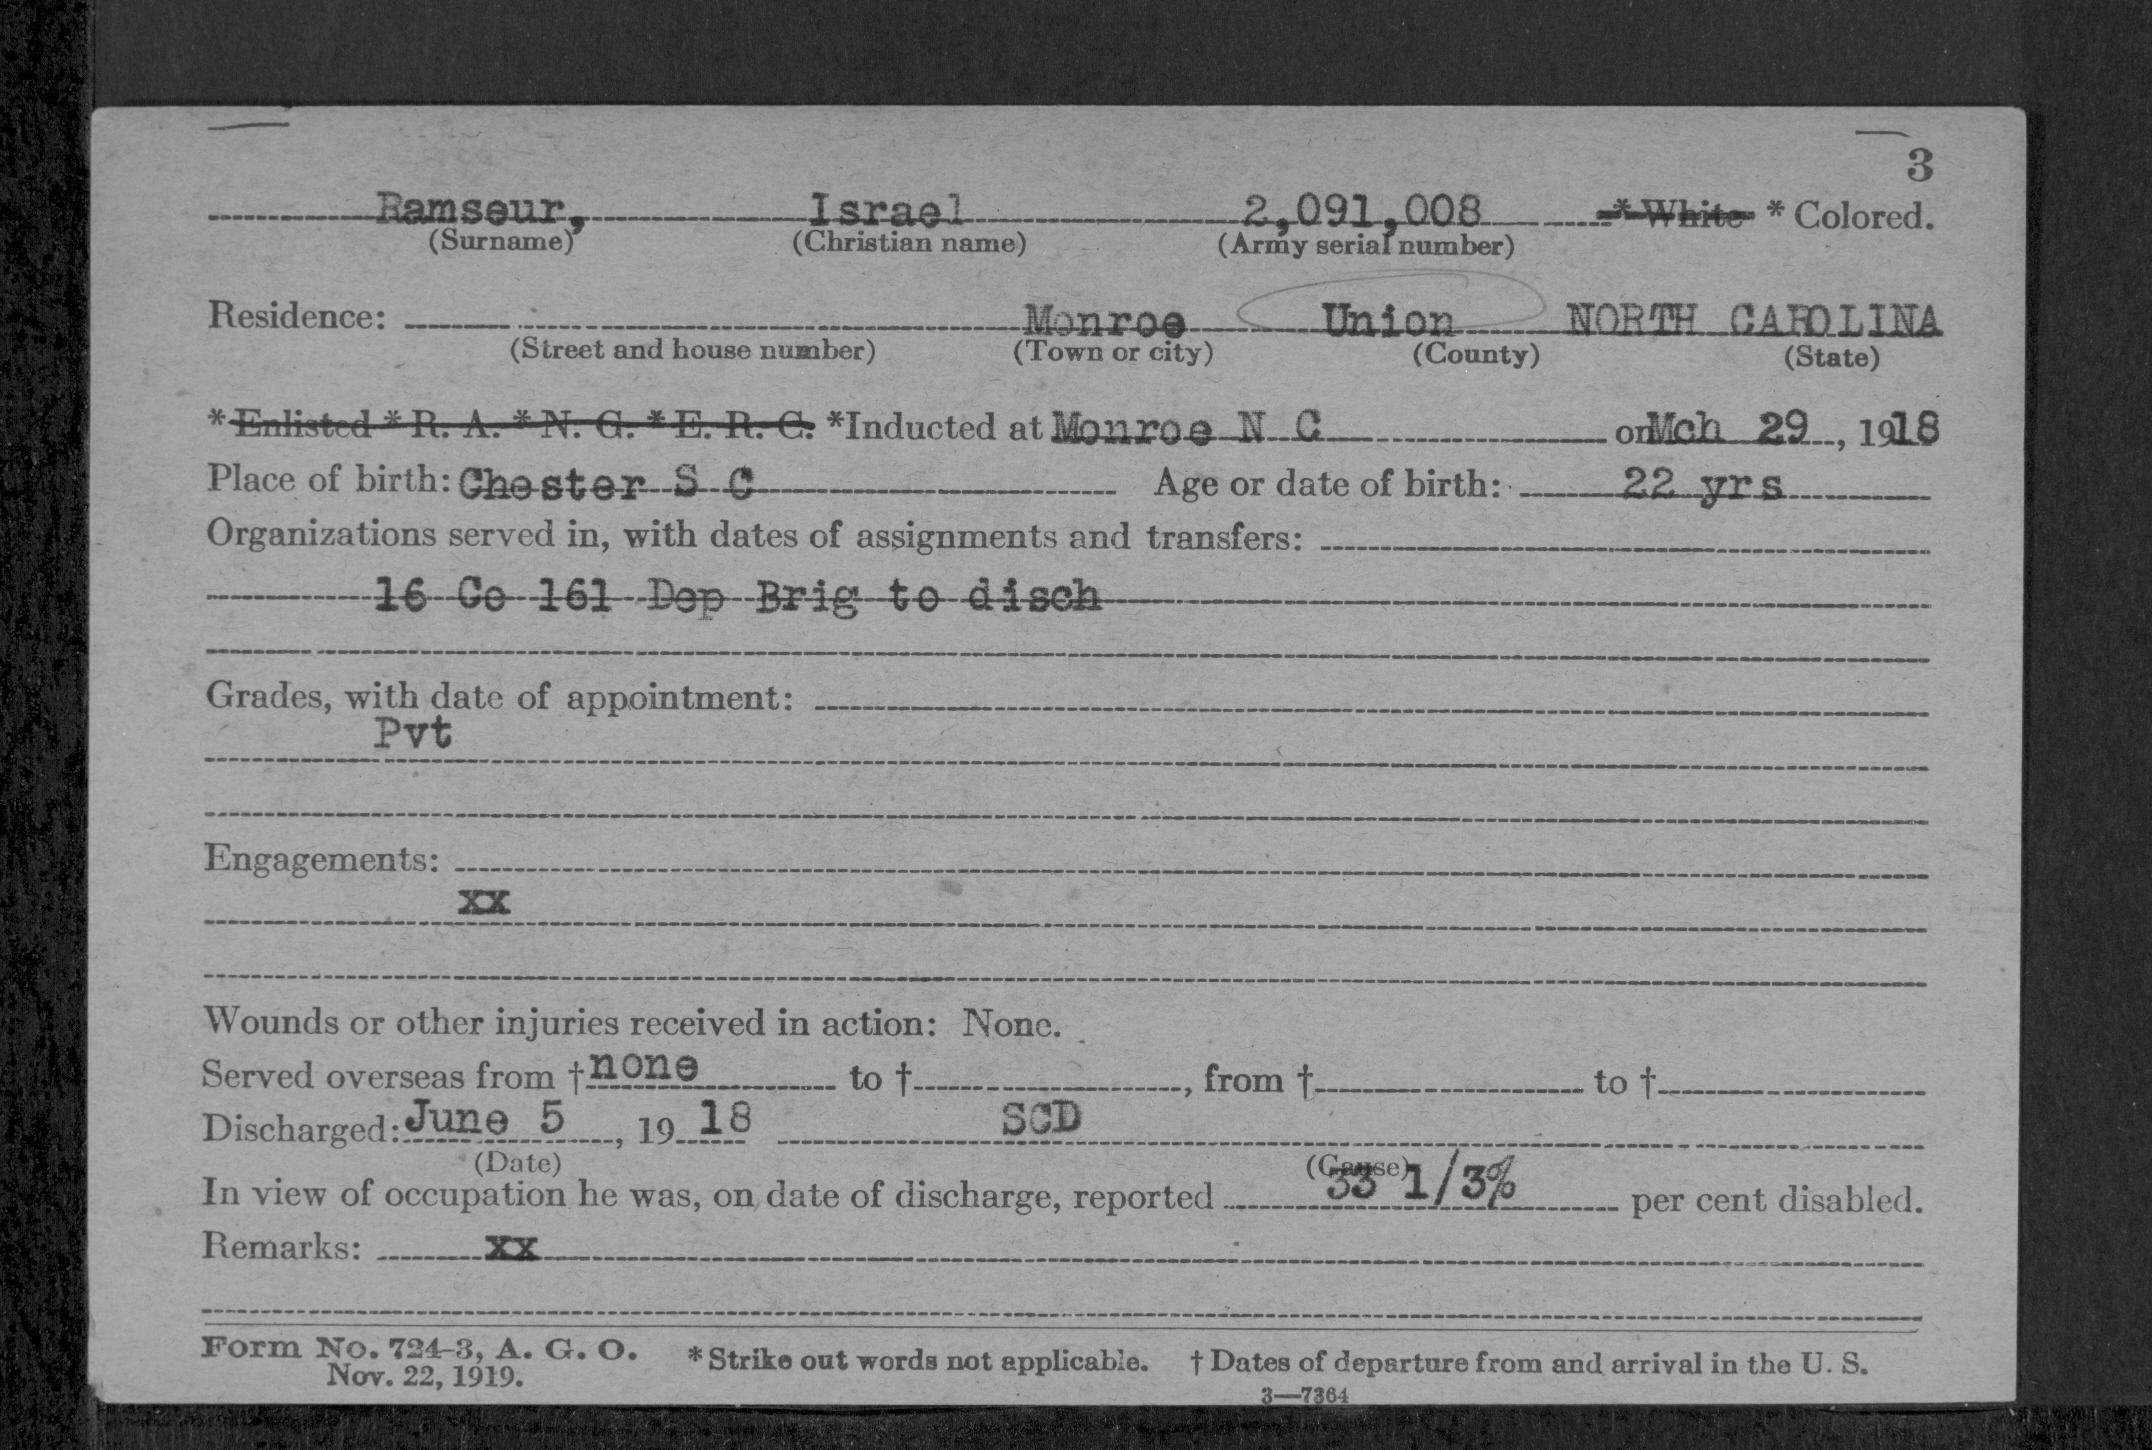 3
Ramseur, Israel 2,091,008 * White * Colored.
(Surname) (Christian name) (Army serial number)
Residence: Monroe Union NORTH CAROLINA
(Street and house number) (Town or city) (County) (State)
* Enlisted * R. A. * N. G. * E. R. C. *Inducted at Monroe N C on Mch 29, 1918
Place of birth: Chester S C Age or date of birth: 22 yrs
Organizations served in, with dates of assignments and transfers:
16 Co 161 Dep Brig to disch
Grades, with date of appointment:
Pvt
Engagements:
xx
Wounds or other injuries received in action: None.
Served overseas from † none to †, from † to †
Discharged: June 5, 19 18 SCD
(Date) (Cause)
In view of occupation he was, on date of discharge, reported 33 1/3% per cent disabled.
Remarks: xx
Form No. 724-3, A. G. O. * Strike out words not applicable. † Dates of departure from and arrival in the U. S.
Nov. 22, 1919.
3—7364